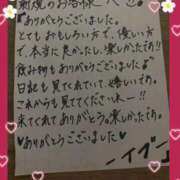 新規のお客様へ♡
♥ありがとうございました。
とても おもしろい方で、優しい方
で、本当に良かったし、楽しかったです!!
飲み物もありがとうございました!!
日記も見てくれていて、嬉しいです。
これからも見てくださいねー!!
来てくれてありがとう。楽しかったです。
♥ありがとうございました♥
ーイブー